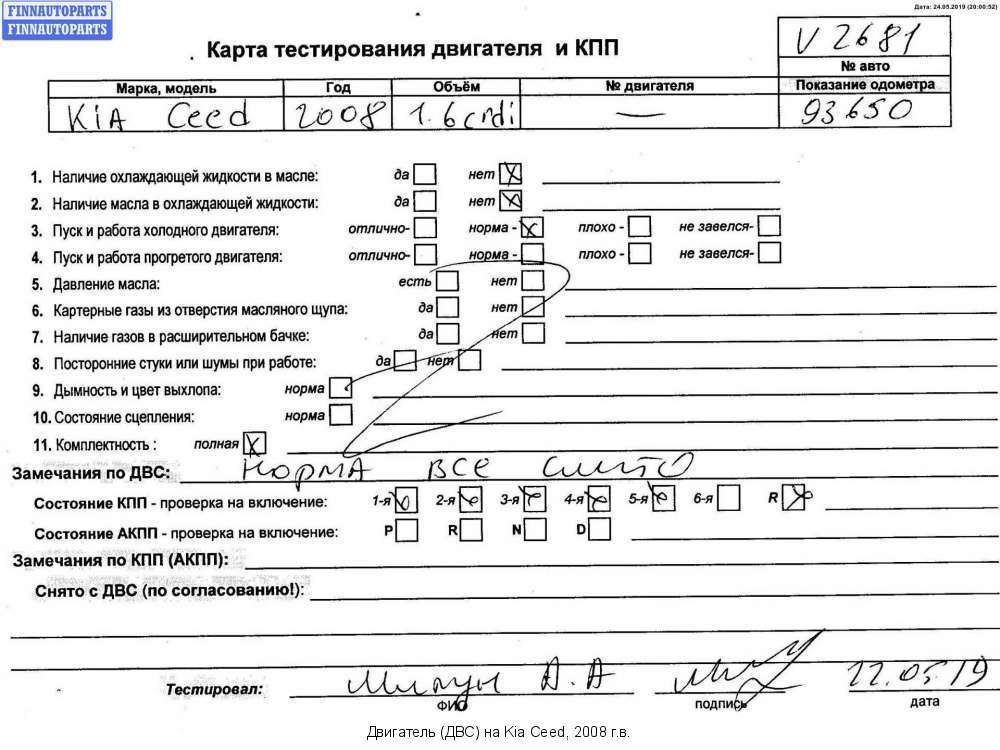 FINNAUTOPARTS
FINNAUTOPARTS
Дата: 24.05.2019 (20:00:52)
Карта тестирования двигателя и КПП
V 2681
№ авто
Марка, модель Год Объём № двигателя Показание одометра
Kia Ceed 2008 1.6 crdi — 93650
1. Наличие охлаждающей жидкости в масле: да нет
2. Наличие масла в охлаждающей жидкости: да нет
3. Пуск и работа холодного двигателя: отлично- норма - плохо - не завелся-
4. Пуск и работа прогретого двигателя: отлично- норма - плохо - не завелся-
5. Давление масла: есть нет
6. Картерные газы из отверстия масляного щупа: да нет
7. Наличие газов в расширительном бачке: да нет
8. Посторонние стуки или шумы при работе: да нет
9. Дымность и цвет выхлопа: норма
10. Состояние сцепления: норма
11. Комплектность : полная
Замечания по ДВС: норма все слито
Состояние КПП - проверка на включение: 1-я 2-я 3-я 4-я 5-я 6-я R
Состояние АКПП - проверка на включение: P R N D
Замечания по КПП (АКПП):
Снято с ДВС (по согласованию!):
Тестировал: А.А 22.05.19
ФИО подпись дата
Двигатель (ДВС) на Kia Ceed, 2008 г.в.